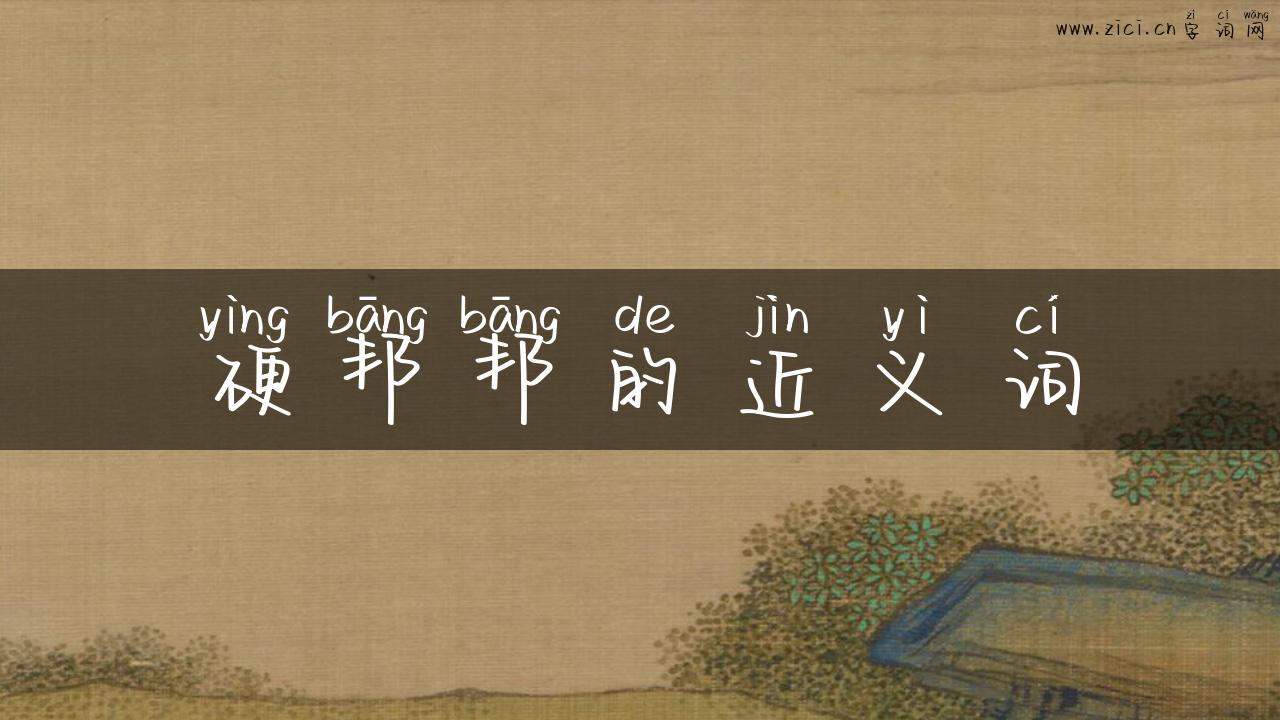 zì cí wǎng
www.zici.cn字词网
yìng bāng bāng de jìn yì cí
硬邦邦的近义词